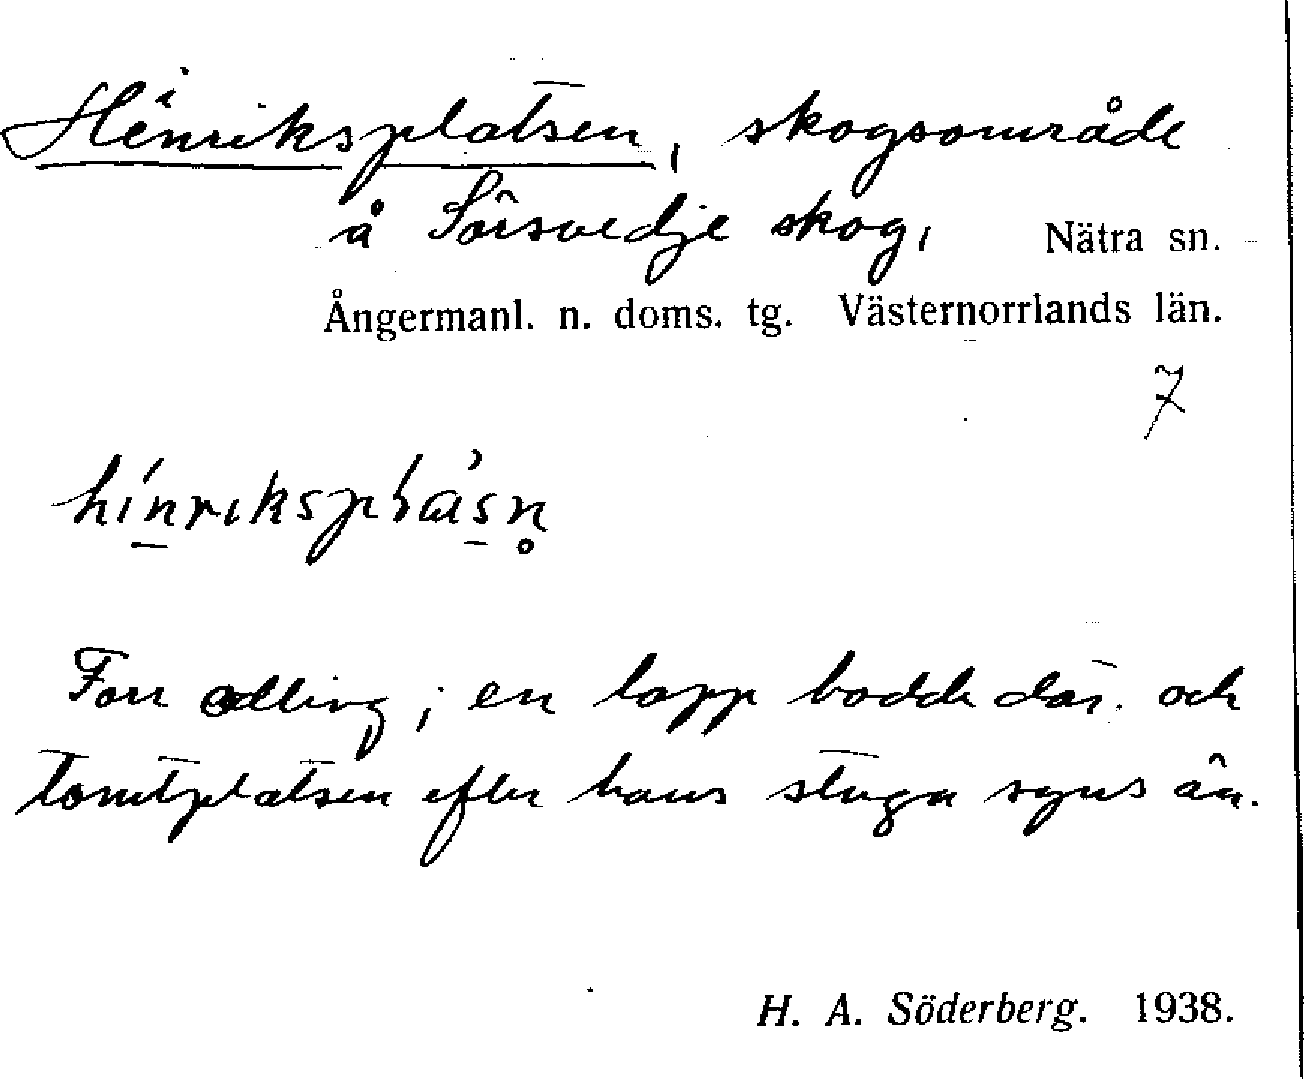 Henriksplatsen, skogsområde
å Sörsvedje skog, Nätra sn.
Ångermanl. n. doms. tg. Västernorrlands län.
7
Förr odling; en lapp bodde där. och
tomtplatsen efter hans stuga syns än.
H. A. Söderberg. 1938.